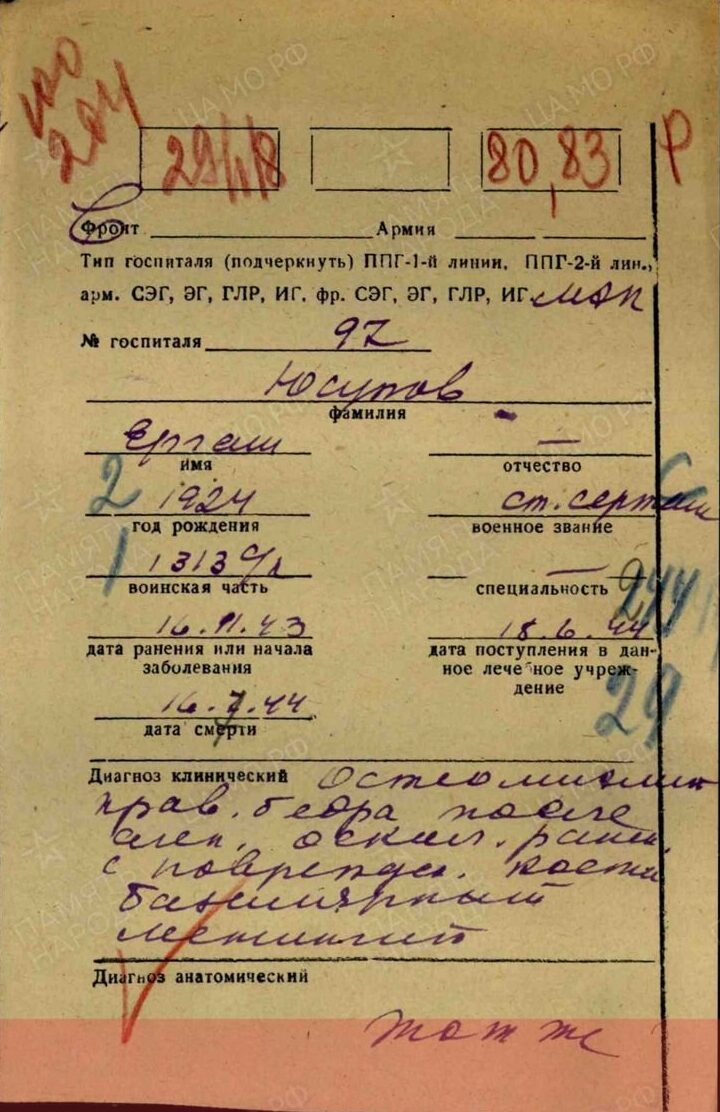 204
29/II/8 80,83 Р
Фронт Армия
Тип госпиталя (подчеркнуть) ППГ-1-й линии, ППГ-2-й лин.,
арм. СЭГ, ЭГ, ГЛР, ИГ, фр. СЭГ, ЭГ, ГЛР, ИГ
№ госпиталя 97
Юсупов
фамилия
Ергаш —
имя отчество
2 1924 ст. сержан
год рождения военное звание
1 1313 —
воинская часть специальность 244
16.11.43 18.6.44
дата ранения или начала дата поступления в дан-
заболевания ное лечебное учреж-
дение
16.7.44 29
дата смерти
Диагноз клинический Остеомиелит
прав. бедра после
слеп. оскол. ранен.
с поврежден. кости
базилярный
менингит
Диагноз анатомический
тот же
ПАМЯТЬ НАРОДА
ЦАМО РФ